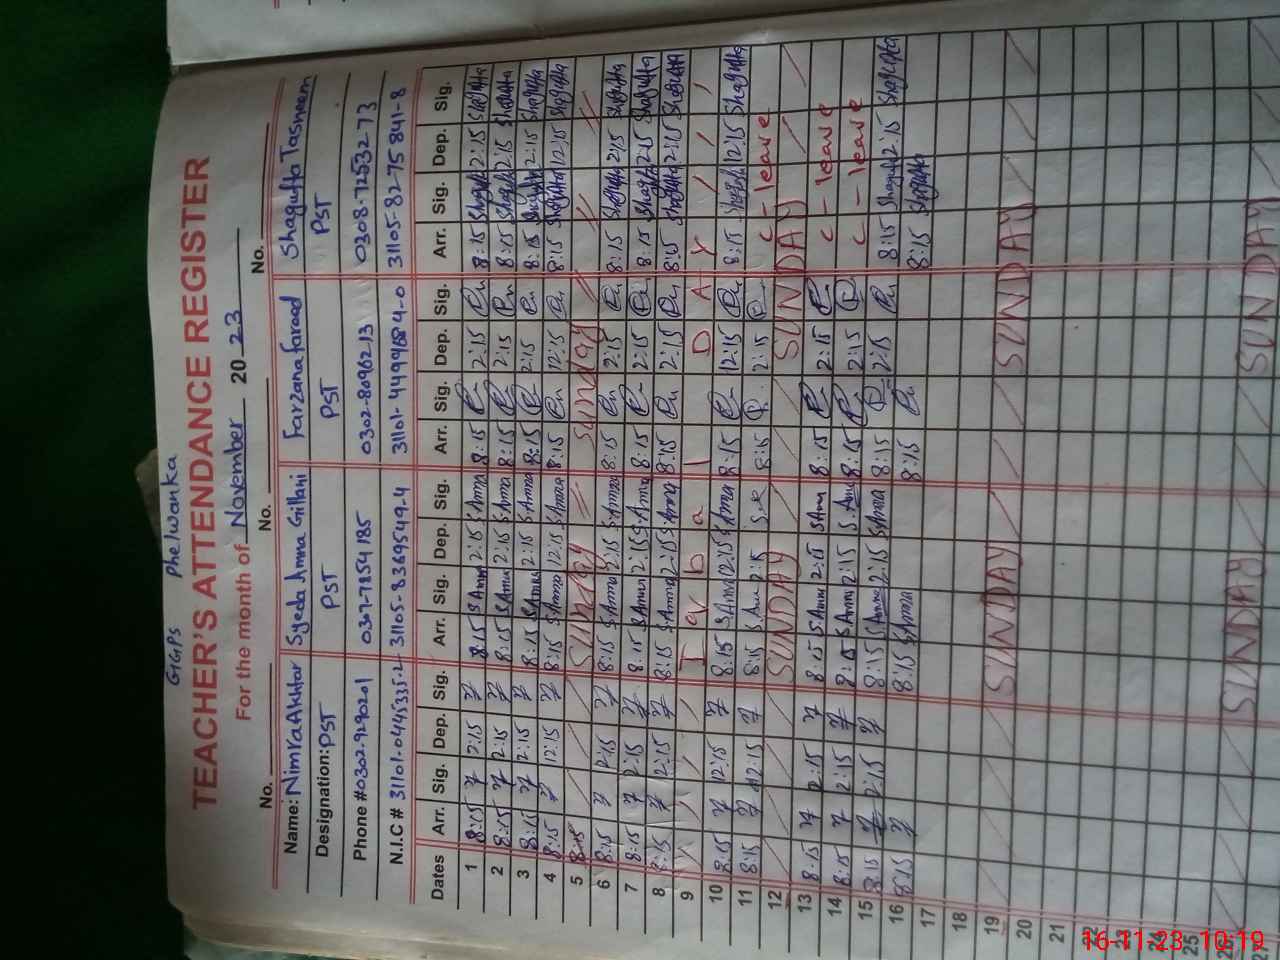 GGPS Phelwanka
TEACHER'S ATTENDANCE REGISTER
For the month of November 2023
No. No. No. No.
Name: Nimra Akhtar Syeda Amna Gillani Farzana farood Shagufta Tasneem
Designation: PST PST PST PST
Phone #0302-9290201 0307-7854185 0302-8096213 0308-7253273
N.I.C # 31101-0445335-2 31105-8369549-4 31101-4499684-0 31105-82-75841-8
Dates Arr. Sig. Dep. Sig. Arr. Sig. Dep. Sig. Arr. Sig. Dep. Sig. Arr. Sig. Dep. Sig.
1 8:15 2:15 8:15 S Amna 2:15 S Amna 8:15 2:15 8:15 Shagufta 2:15 Shagufta
2 8:15 2:15 8:15 S Amna 2:15 S Amna 8:15 2:15 8:15 Shagufta 2:15 Shagufta
3 8:15 2:15 8:15 S Amna 2:15 S Amna 8:15 2:15 8:15 Shagufta 2:15 Shagufta
4 8:15 12:15 8:15 S Amna 12:15 S Amna 8:15 12:15 8:15 Shagufta 12:15 Shagufta
5 8:15 Sunday Sunday
6 8:15 2:15 8:15 S Amna 2:15 S Amna 8:15 2:15 8:15 Shagufta 2:15 Shagufta
7 8:15 2:15 8:15 S Amna 2:15 S Amna 8:15 2:15 8:15 Shagufta 2:15 Shagufta
8 8:15 2:15 8:15 S Amna 2:15 S Amna 8:15 2:15 8:15 Shagufta 2:15 Shagufta
9 I q b a l D A Y
10 8:15 12:15 8:15 S Amna 12:15 S Amna 8:15 12:15 8:15 Shagufta 12:15 Shagufta
11 8:15 12:15 8:15 2:15 8:15 2:15 C - leave
12 SUNDAY SUNDAY
13 8:15 2:15 8:15 S Amna 2:15 S Amna 8:15 2:15 C - leave
14 8:15 2:15 8:15 S Amna 2:15 S Amna 8:15 2:15 C - leave
15 8:15 2:15 8:15 S Amna 2:15 S Amna 8:15 2:15 8:15 Shagufta 2:15 Shagufta
16 8:15 8:15 S Amna 8:15 8:15 Shagufta
17
18
19 SUNDAY SUNDAY
20
21
22
23
24
25
26 SUNDAY SUNDAY
27
16-11-23 10:19